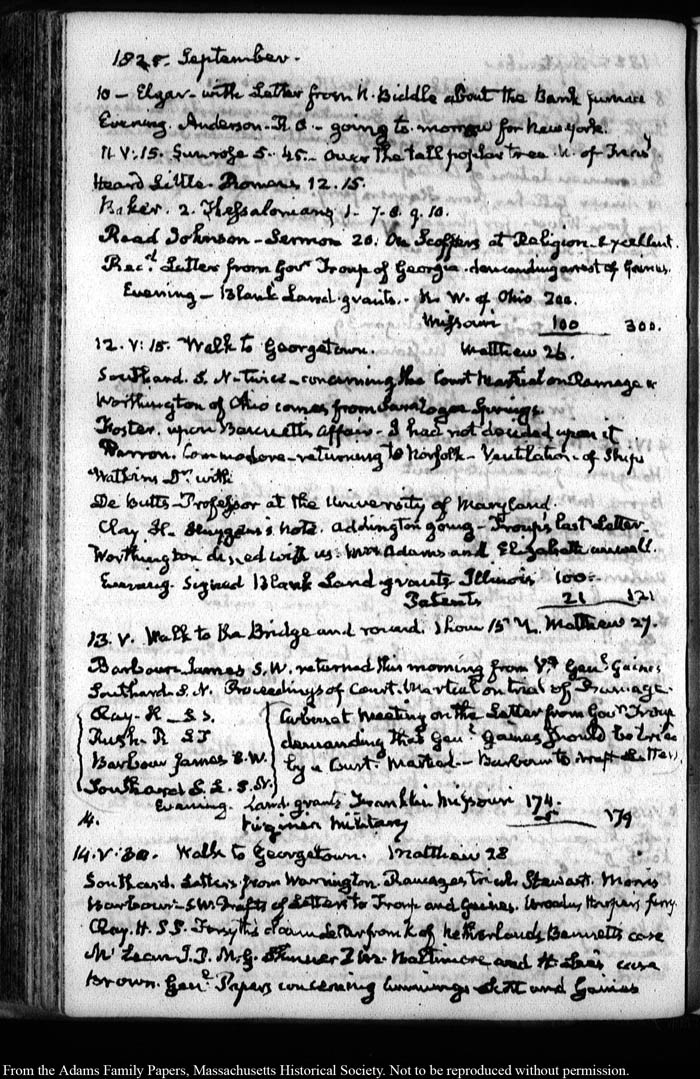 1825. September.
10 – Elgar – with Letter from N. Biddle about the Bank furnace
Evening. Anderson – R. C. – going to morrow for New York.
11. V:15. Sunrose 5. 45. – Over the tall poplar tree. N. of
Heard Little. Romans 12. 15.
Baker. 2. Thessalonians 1. 7. 8. 9. 10.
Read Johnson – Sermon 20. On Scoffers at Religion. Excellent.
Rec.d Letter from Gov.r Troup of Georgia. demanding arrest of Gaines.
Evening – Blank Land grants. N. W. of Ohio 200.
Missouri 100 300.
12. V: 15. Walk to Georgetown. Matthew 26.
Southard. S. N – twice – concerning the Court Martial on Ramage &
Worthington of Ohio comes from Saratoga Springs.
Foster. upon Affair – I had not decided upon it
Barron. Commodore – returning to Norfolk – Ventilation – of Ships
Watkins Dr. with
De Butts – Professor at the University of Maryland.
Clay H. – Huygens's note. Addington going – Troup's last Letter –
Worthington dined with us. Mrs Adams and Elizabeth unwell.
Evening. Signed Blank Land grants Illinois 100 –
Patents 21 121
13. V. Walk to the Bridge and round. 1 hour 15 Matthew 27.
Barbour James S. W. returned this morning from Va. Genl. Gaines
Southard. S. N. Proceedings of Court. Martial on trial of Ramage.
Clay – H – S. S.
Rush – R S T
Barbour James S. W.
Southard S. L. S. N.
Cabinet Meeting on the Letter from Govr. Troup
demanding that Genl. Gaines should be tried
by a Court Martial – Barbour to draft Letter
Evening. Land grants Franklin Missouri 174.
14. Virginia Military 5 179
14. V: 30. Walk to Georgetown. Matthew 28
Southard. Letters from Warrington. Ramage's trial. Stewart. Morris
Barbour – S W. Drafts of Letters to Troup and Gaines. Harpers ferry
Clay. H. S S. Forsyth's Letter from K of Netherlands case
McLean J. P. M. G. Skinner P M. Baltimore and H. Lee's case
Brown. Genl. Papers concerning Cummings Scott and Gaines
From the Adams Family Papers, Massachusetts Historical Society. Not to be reproduced without permission.